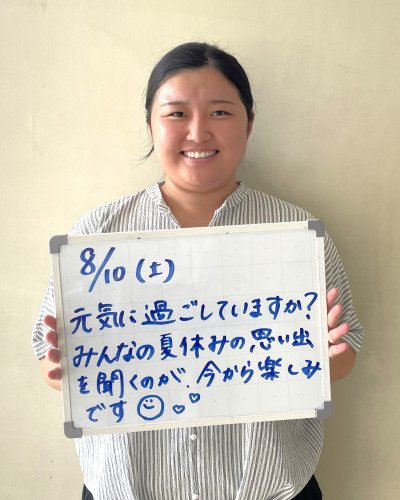 8/10(土)
元気に過ごしていますか?
みんなの夏休みの思い出
を聞くのが、今から楽しみ
です